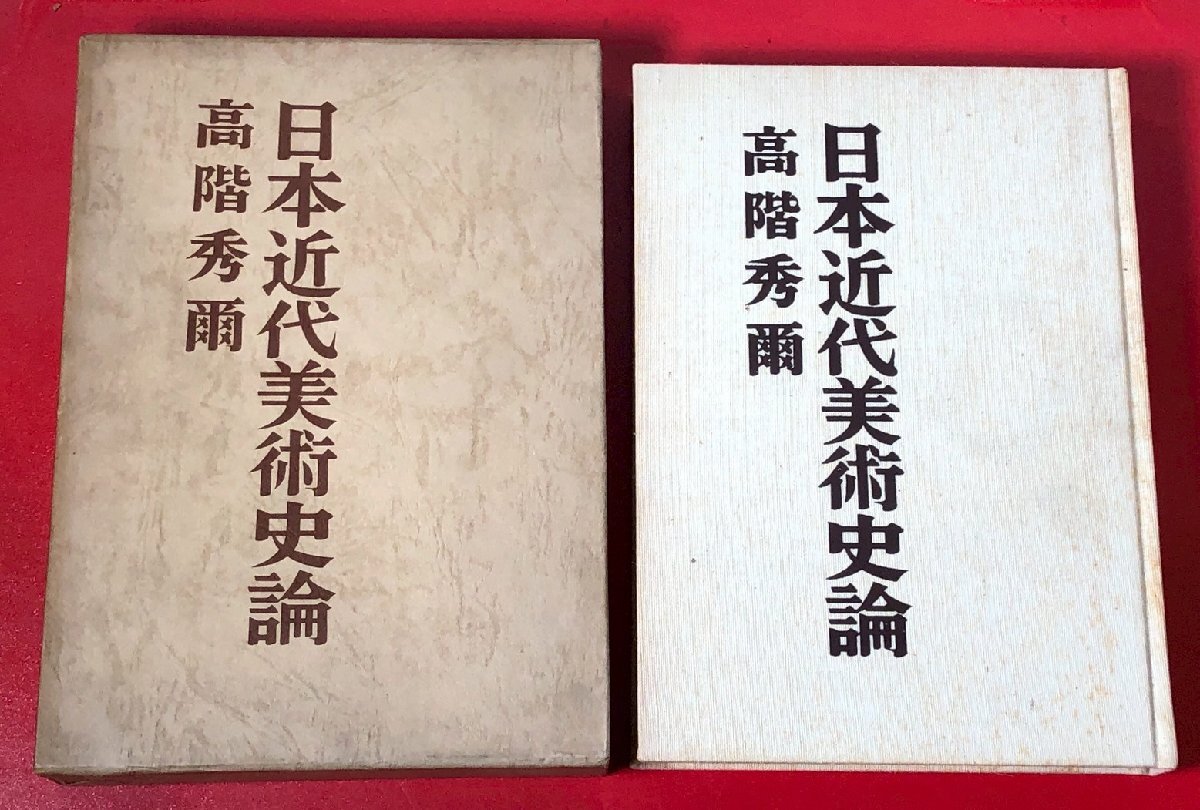 日本近代美術史論
高階秀爾
日本近代美術史論
高階秀爾